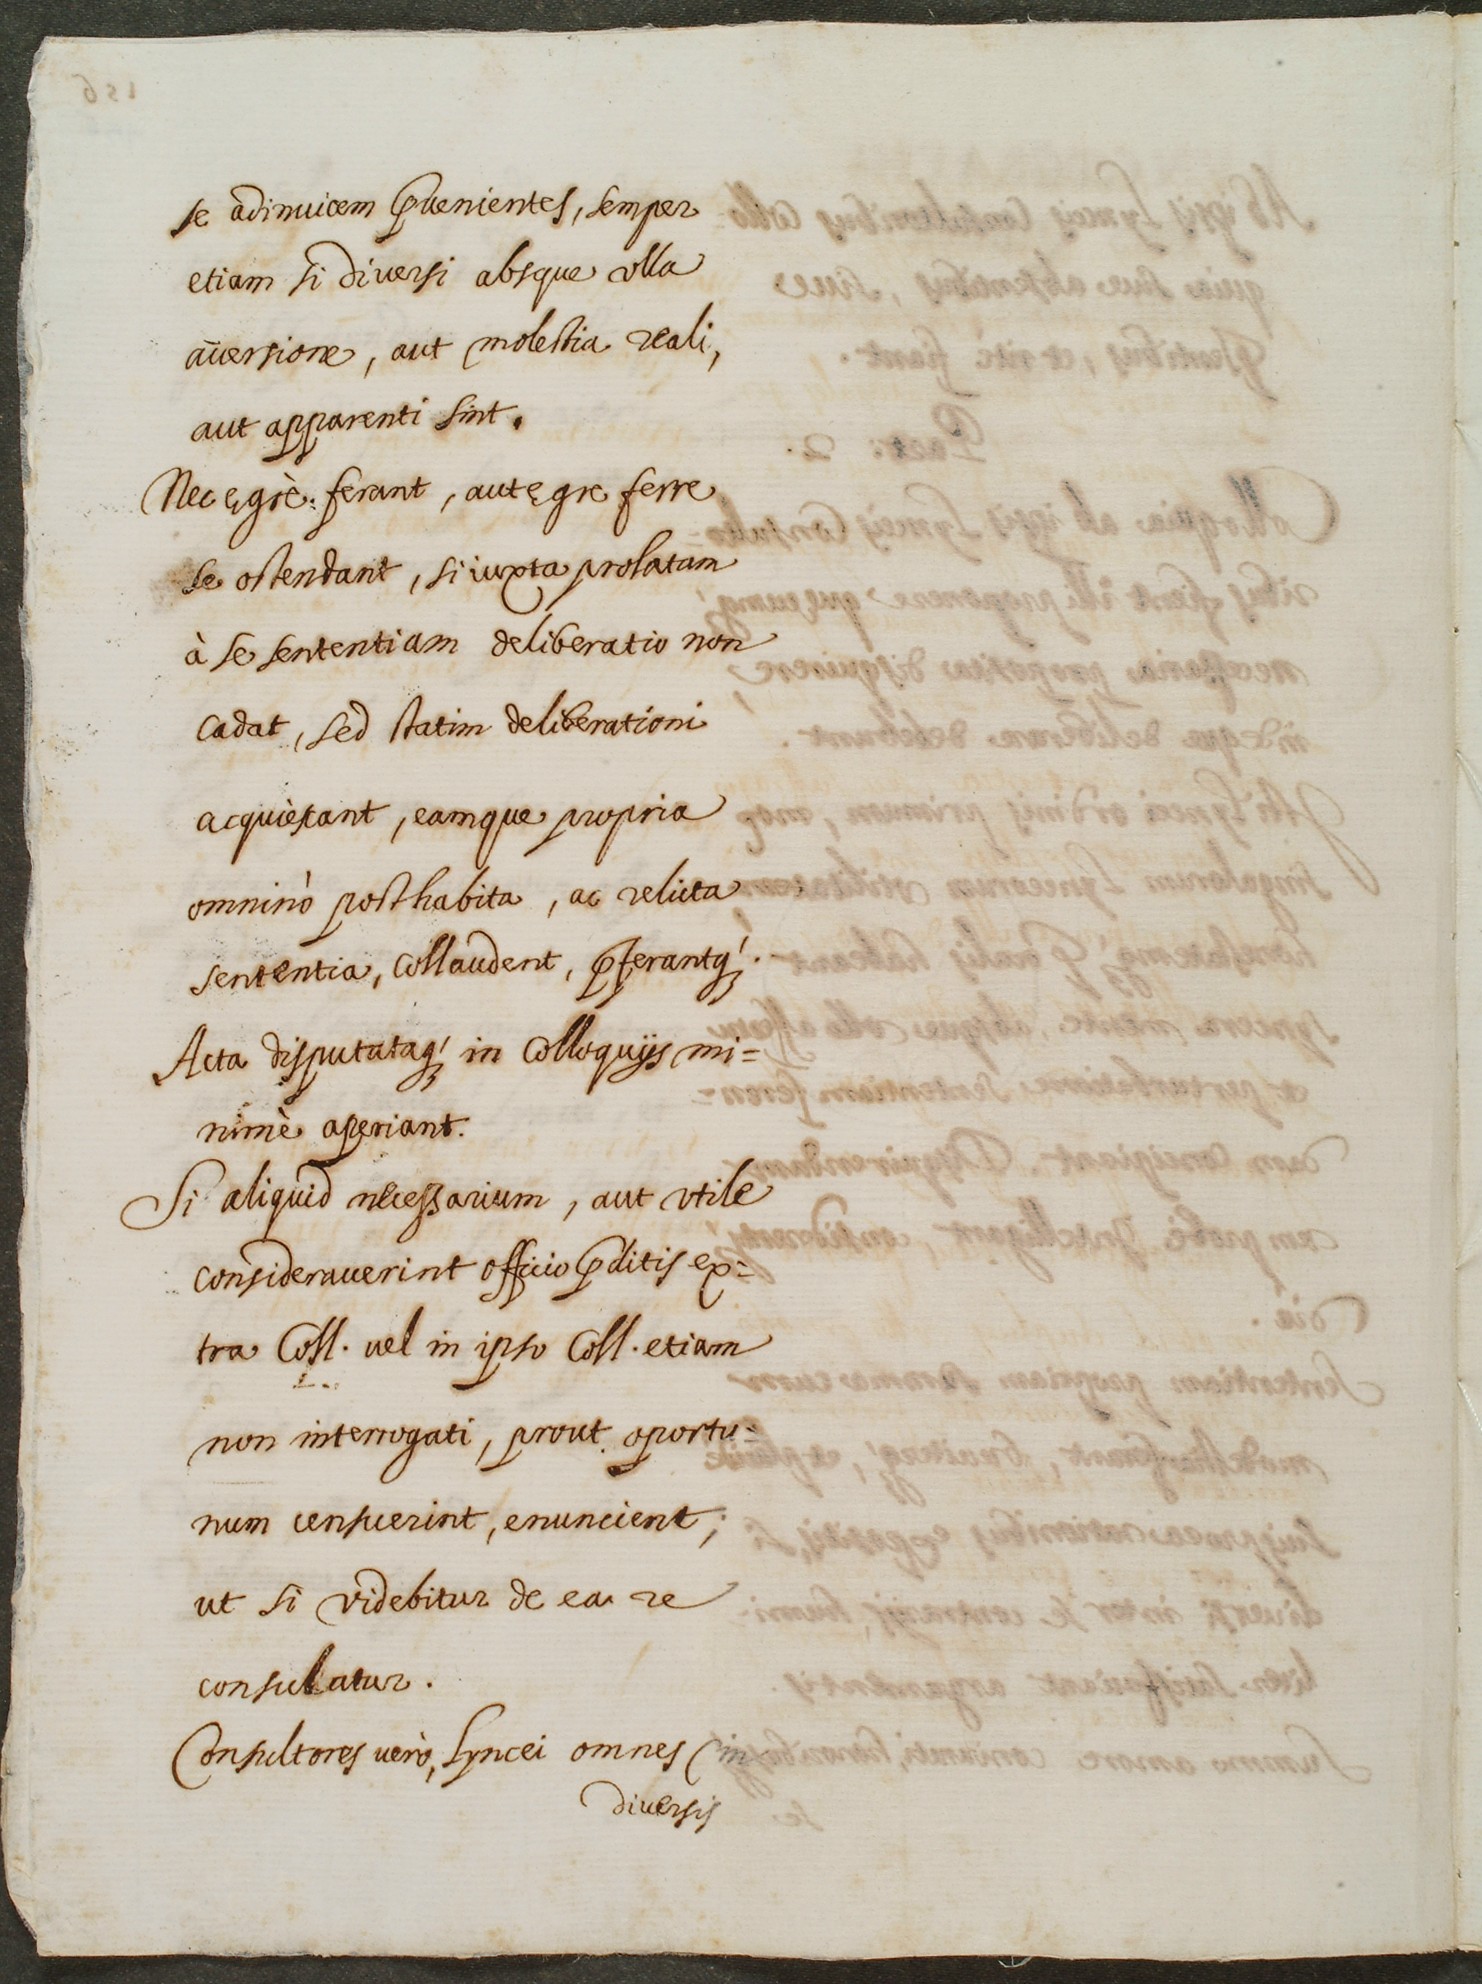 se adinuicem p̃uenientes, semper
etiam si diuersi absque vlla
auersione, aut molestia reali,
aut apparenti sint.
Nec ęgrè ferant, aut ęgre ferre
se ostendant, si iuxta prolatam
à se sententiam deliberatio non
cadat, sed statim deliberationi
acquiescant, eamque propria
omninò posthabita, ac relicta
sententia, collaudent, p̃ferantq́.
Acta disputataq́ in Colloquijs mi=
nimè aperiant.
Si aliquid necessarium, aut vtile
considerauerint officio p̃ditis ex=
tra Coll. uel in ipso Coll. etiam
non interrogati, prout oportu=
num censuerint, enuncient;
ut si videbitur de ea re
consulatur.
Consultores uerò, Lyncei omnes in
diuersis